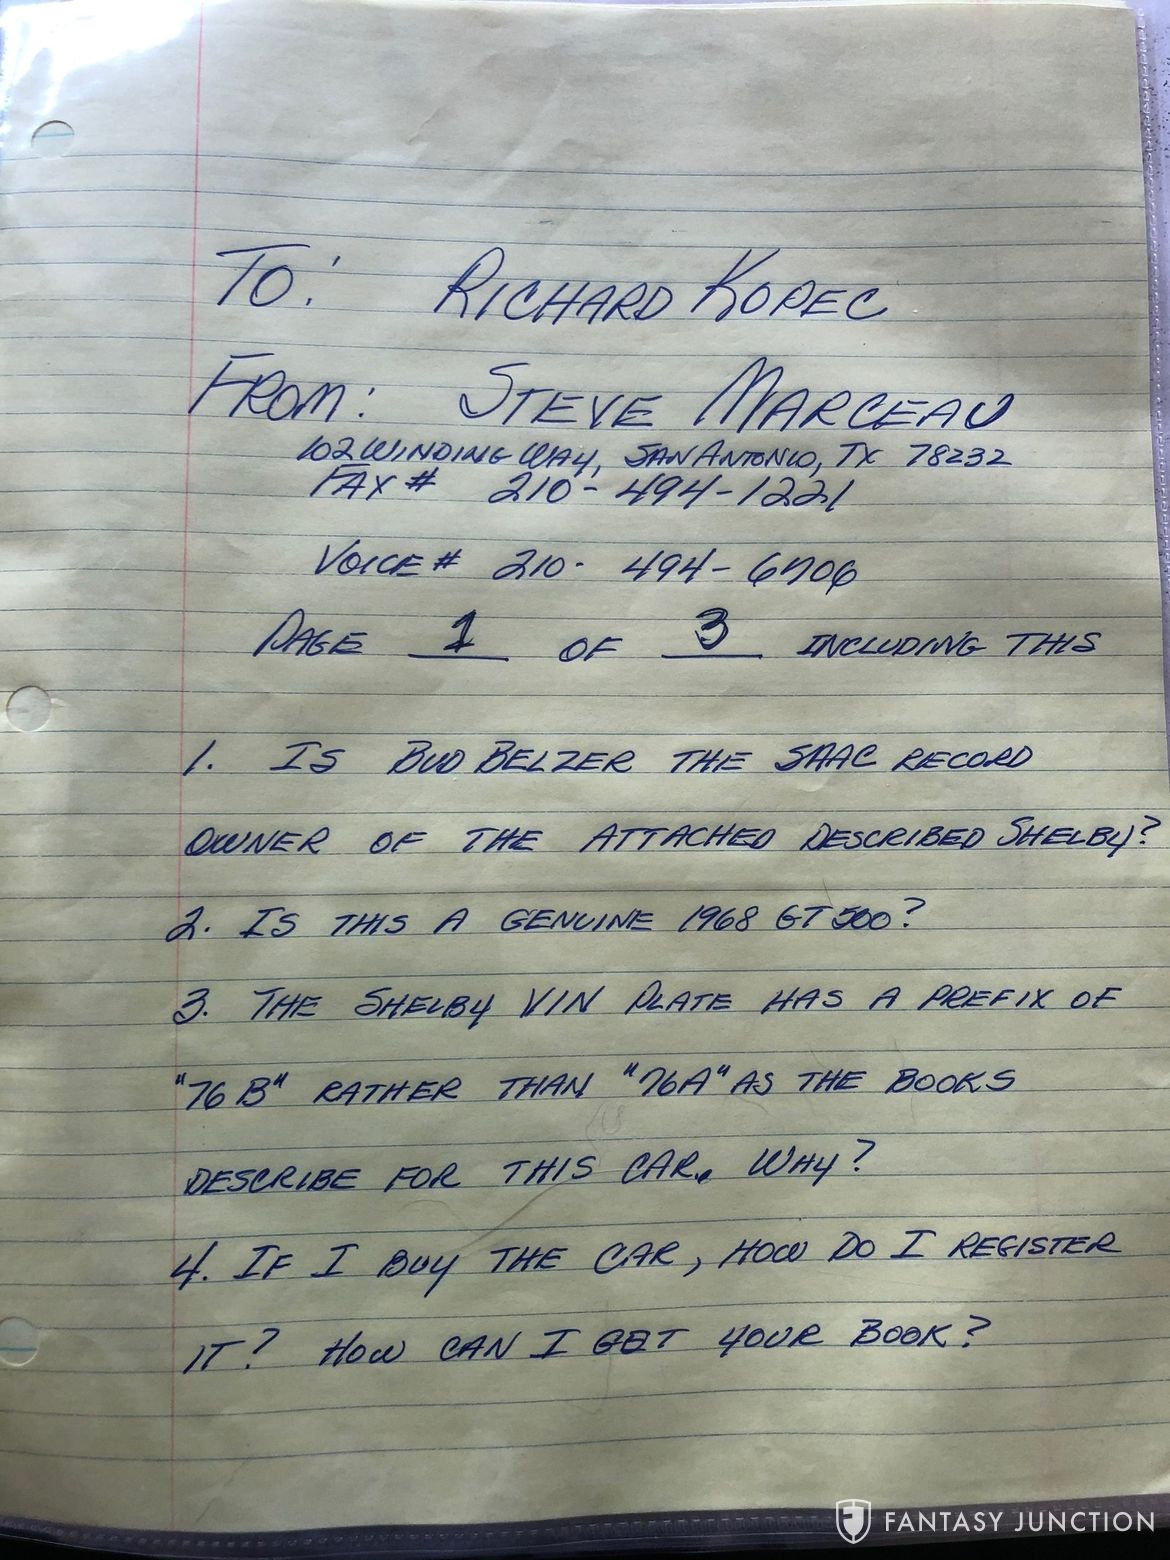 TO: RICHARD KOPEC
FROM: STEVE MARCEAU
102 WINDING WAY, SAN ANTONIO, TX 78232
FAX # 210-494-1221
VOICE # 210-494-6706
PAGE 1 OF 3 INCLUDING THIS
1. IS BUD BELZER THE SAAC RECORD
OWNER OF THE ATTACHED DESCRIBED SHELBY?
2. IS THIS A GENUINE 1968 GT 500?
3. THE SHELBY VIN PLATE HAS A PREFIX OF
"76B" RATHER THAN "76A" AS THE BOOKS
DESCRIBE FOR THIS CAR. WHY?
4. IF I BUY THE CAR, HOW DO I REGISTER
IT? HOW CAN I GET YOUR BOOK?
FANTASY JUNCTION